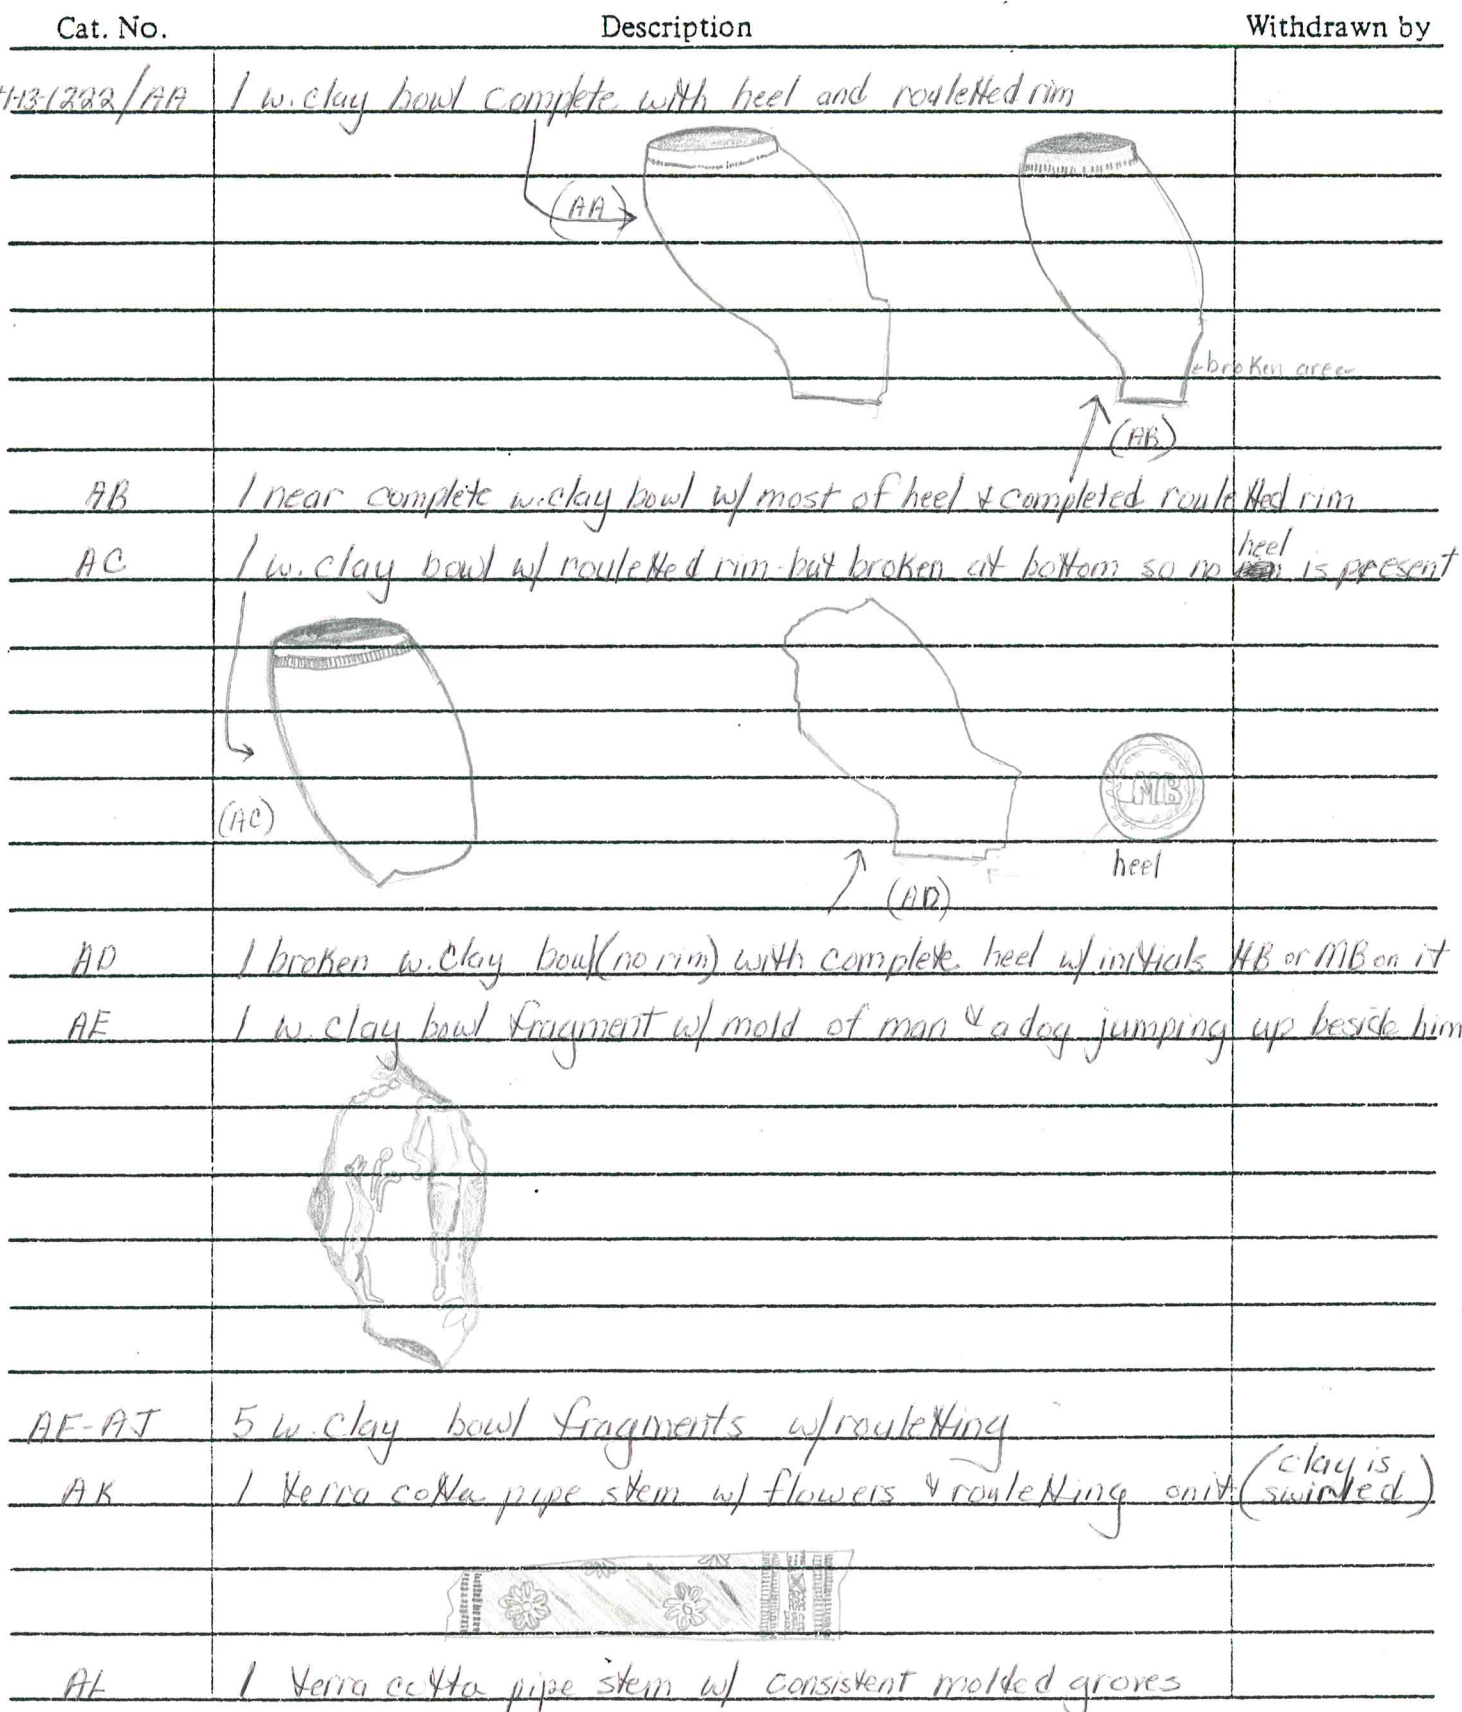 Cat. No. Description Withdrawn by
1222/AA 1 w. clay bowl complete with heel and rouletted rim
(AA)
←broken area
(AB)
AB 1 near complete w. clay bowl w/ most of heel & completed rouletted rim
AC 1 w. clay bowl w/ rouletted rim but broken at bottom so no heel is present
(AC)
MB
heel
(AD)
AD 1 broken w. clay bowl (no rim) with complete heel w/ initials HB or MB on it
AE 1 w. clay bowl fragment w/ mold of man & a dog jumping up beside him
AF-AJ 5 w. clay bowl fragments w/ rouletting
AK 1 terra cotta pipe stem w/ flowers & rouletting on it (clay is swirled)
AL 1 terra cotta pipe stem w/ consistent molded groves